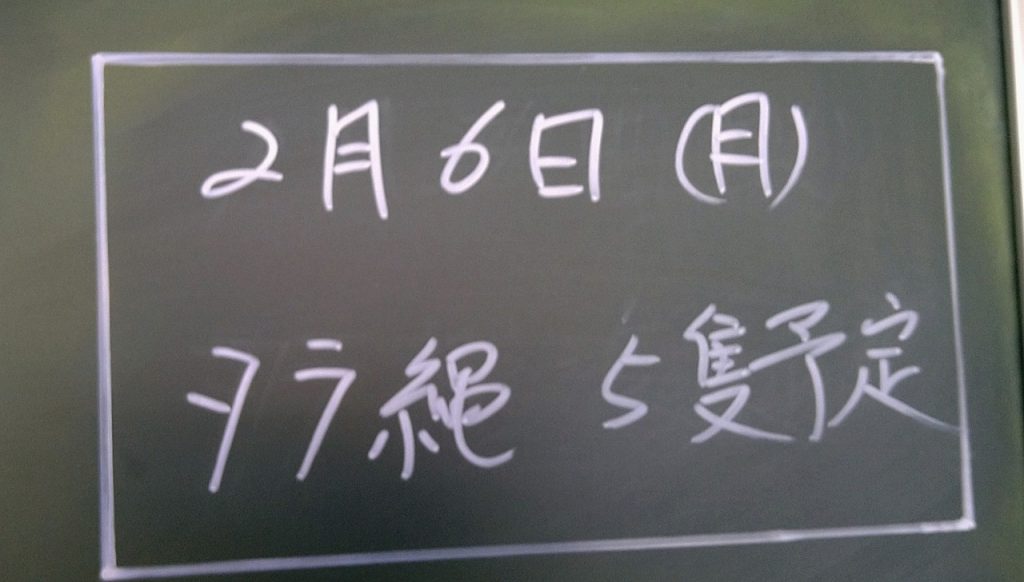 2月6日(月)
タラ縄 5隻予定